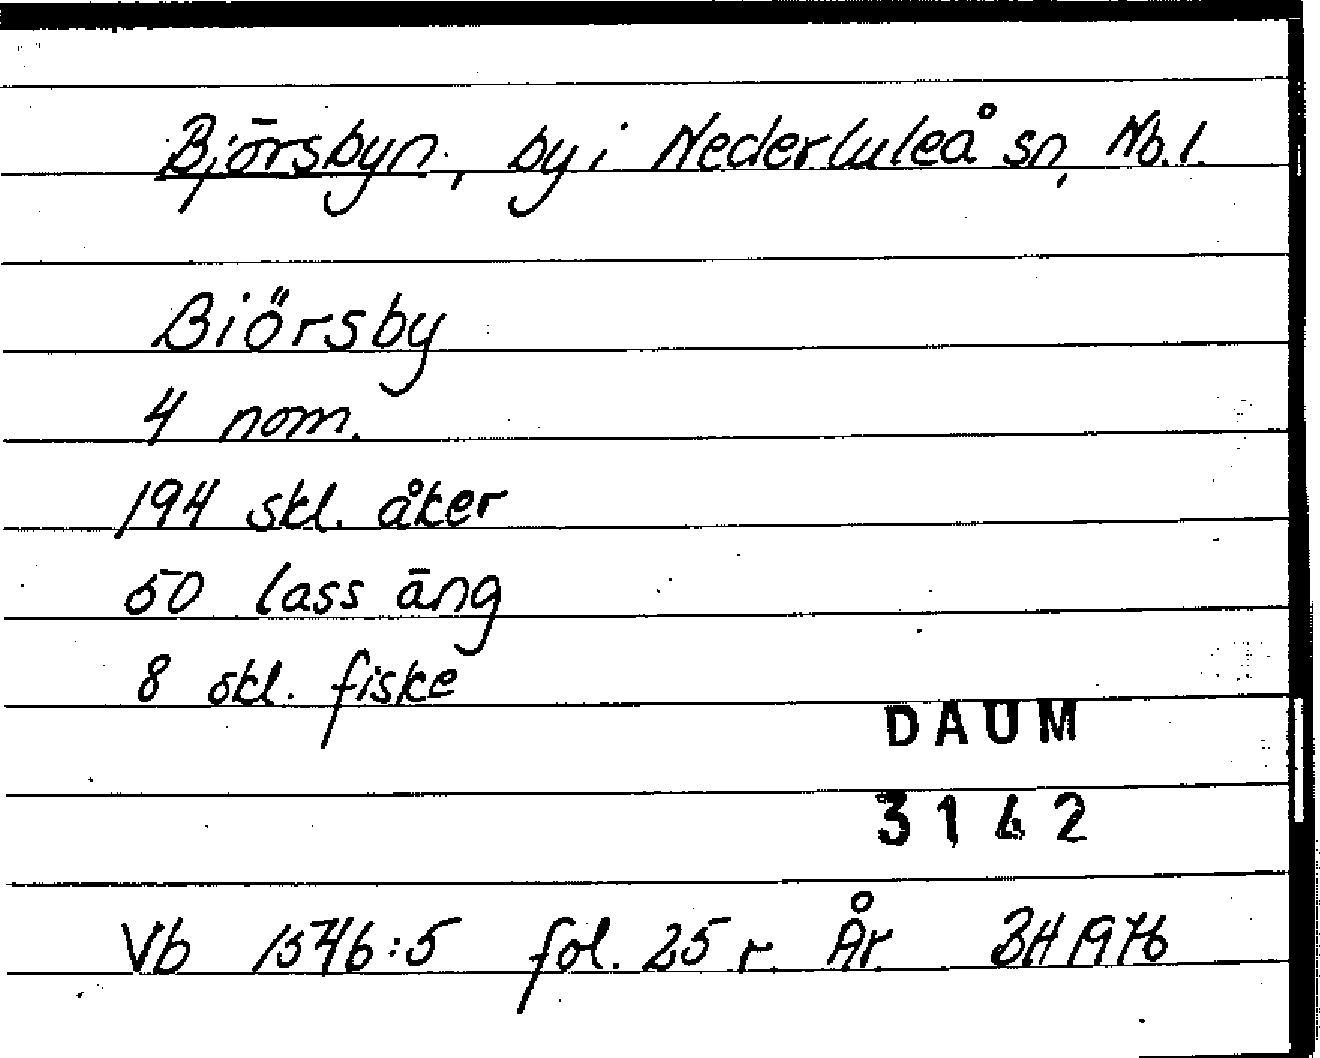 Björsbyn, by i Nederluleå sn, Nb.l.
Biörsby
4 nom.
194 skl. åker
50 lass äng
8 skl. fiske
DAUM
3142
Vb 1546:5 fol. 25 r. År BH 1976